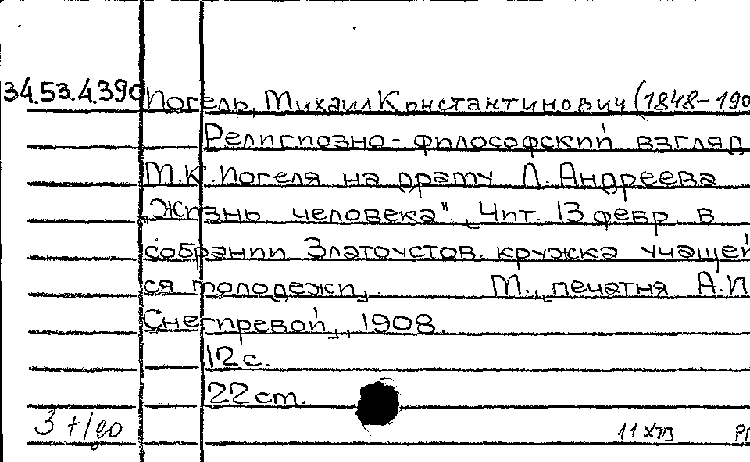 34.53.4.390 Погель, Михаил Константинович (1848-190
Религиозно-философский взгляд
М.К. Погеля на драму Л. Андреева
„Жизнь человека". Чит. 13 февр. в
собрании Златоустов. кружка учащей
ся молодежи. М., печатня А.И.
Снегиревой, 1908.
12 с.
22 см.
11 XII